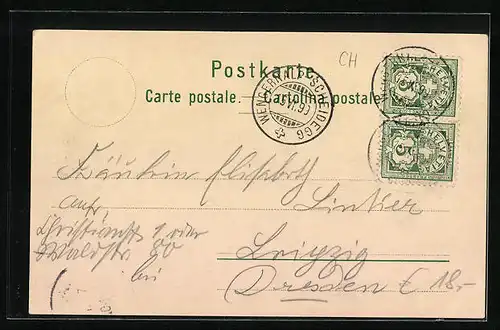 CH
Postkarte.
Carte postale. Cartolina postale
WENGERNALP-SCHEIDEGG
HELVETIA
5
HELVETIA
5
Fräulein Elisabeth
Linker
auf
Christianstr 1 oder
Waldstr 80
bei
Leipzig
Dresden
€ 18.-